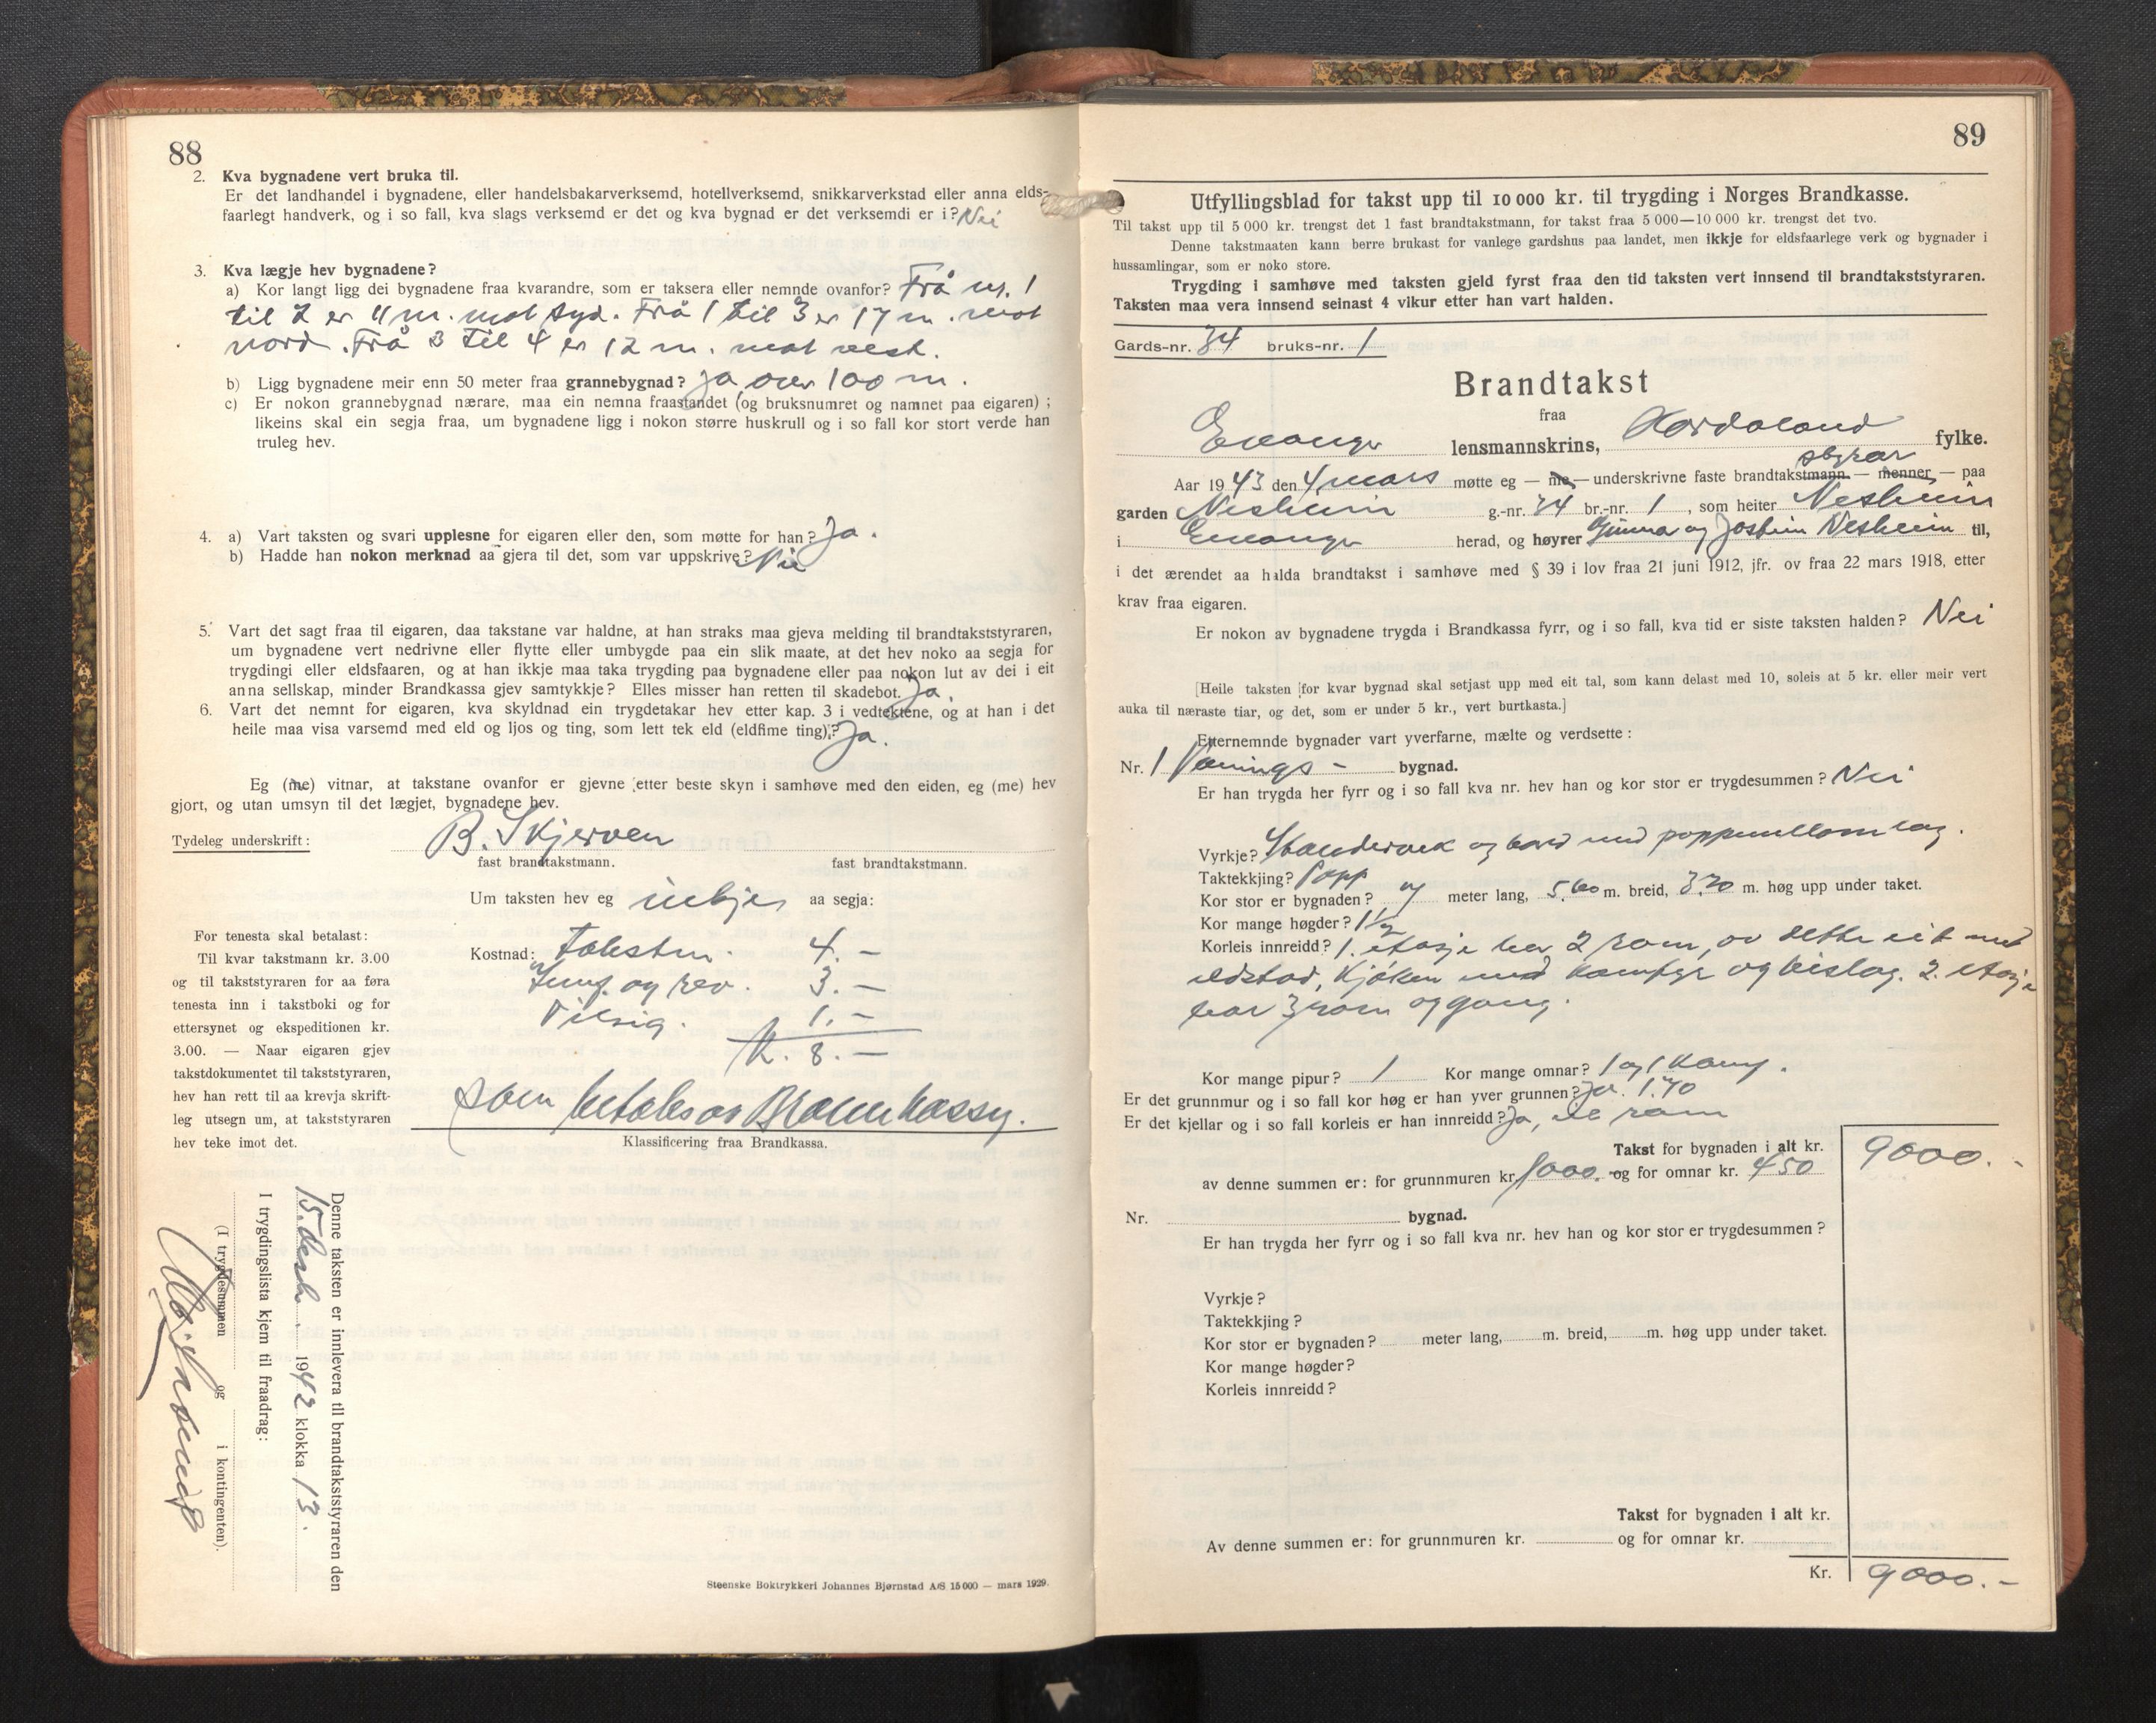 88
2. Kva bygnadene vert bruka til.
Er det landhandel i bygnadene, eller handelsbakarverksemd, hotellverksemd, snikkarverkstad eller anna elds-
faarlegt handverk, og i so fall, kva slags verksemd er det og kva bygnad er det verksemdi er i? Nei
3. Kva lægje hev bygnadene?
a) Kor langt ligg dei bygnadene fraa kvarandre, som er taksera eller nemnde ovanfor? Frå nr. 1
til 2 er 11 m. mot syd. Frå 1 til 3 er 17 m. mot
nord. Frå 3 til 4 er 12 m. mot vest.
b) Ligg bygnadene meir enn 50 meter fraa grannebygnad? Ja over 100 m.
c) Er nokon grannebygnad nærare, maa ein nemna fraastandet (og bruksnumret og namnet paa eigaren) ;
likeins skal ein segja fraa, um bygnadene ligg i nokon større huskrull og i so fall kor stort verde han
truleg hev.
4. a) Vart taksten og svari upplesne for eigaren eller den, som møtte for han? Ja.
b) Hadde han nokon merknad aa gjera til det, som var uppskrive? Nei
5. Vart det sagt fraa til eigaren, daa takstane var haldne, at han straks maa gjeva melding til brandtakststyraren,
um bygnadene vert nedrivne eller flytte eller umbygde paa ein slik maate, at det hev noko aa segja for
trygdingi eller eldsfaaren, og at han ikkje maa taka trygding paa bygnadene eller paa nokon lut av dei i eit
anna sellskap, minder Brandkassa gjev samtykkje? Elles misser han retten til skadebot. Ja.
6. Vart det nemnt for eigaren, kva skyldnad ein trygdetakar hev etter kap. 3 i vedtektene, og at han i det
heile maa visa varsemd med eld og ljos og ting, som lett tek eld (eldfime ting)? Ja.
Eg (me) vitnar, at takstane ovanfor er gjevne etter beste skyn i samhøve med den eiden, eg (me) hev
gjort, og utan umsyn til det lægjet, bygnadene hev.
Tydeleg underskrift: B. Skjerven
fast brandtakstmann. fast brandtakstmann.
Um taksten hev eg inkje aa segja:
For tenesta skal betalast:
Til kvar takstmann kr. 3.00
og til takststyraren for aa føra
tenesta inn i takstboki og for
ettersynet og ekspeditionen kr.
3.00. — Naar eigaren gjev
takstdokumentet til takststyraren,
hev han rett til aa krevja skrift-
leg utsegn um, at takststyraren
hev teke imot det.
Kostnad: Taksten. 4.—
og rev. 3.—
1.—
Kr. 8.—
som betales av Brannkassen.
Klassificering fraa Brandkassa.
Denne taksten er innlevera til brandtakststyraren den
15. desb. 1942 klokka 13.
I trygdingslista kjem til fraadrag:
(I trygdesummen og i kontingenten).
Steenske Boktrykkeri Johannes Bjørnstad A/S 15000 — mars 1929.
89
Utfyllingsblad for takst upp til 10 000 kr. til trygding i Norges Brandkasse.
Til takst upp til 5 000 kr. trengst det 1 fast brandtakstmann, for takst fraa 5 000—10 000 kr. trengst det tvo.
Denne takstmaaten kann berre brukast for vanlege gardshus paa landet, men ikkje for eldsfaarlege verk og bygnader i
hussamlingar, som er noko store.
Trygding i samhøve med taksten gjeld fyrst fraa den tid taksten vert innsend til brandtakststyraren.
Taksten maa vera innsend seinast 4 vikur etter han vart halden.
Gards-nr. 34 bruks-nr. 1
Brandtakst
fraa
Evanger lensmannskrins, Hordaland fylke.
styrar
Aar 1943 den 4 mars møtte eg — me — underskrivne faste brandtakstmann — menner — paa
garden Nesheim g.-nr. 34 br.-nr. 1, som heiter Nesheim
i Evanger herad, og høyrer Gunna og Jostein Nesheim til,
i det ærendet aa halda brandtakst i samhøve med § 39 i lov fraa 21 juni 1912, jfr. ov fraa 22 mars 1918, etter
krav fraa eigaren.
Er nokon av bygnadene trygda i Brandkassa fyrr, og i so fall, kva tid er siste taksten halden? Nei
[Heile taksten for kvar bygnad skal setjast upp med eit tal, som kann delast med 10, soleis at 5 kr. eller meir vert
auka til næraste tiar, og det, som er under 5 kr., vert burtkasta.]
Etternemnde bygnader vart yverfarne, mælte og verdsette :
Nr. 1 Vånings- bygnad.
Er han trygda her fyrr og i so fall kva nr. hev han og kor stor er trygdesummen? Nei
Vyrkje? Standerverk og bord med pappmellomlag.
Taktekkjing? Papp
Kor stor er bygnaden? 9 meter lang, 5,60 m. breid, 3,70 m. høg upp under taket.
Kor mange høgder? 1½
Korleis innreidd? 1. etasje har 2 rom, av dette eit med
eldstad, kjøken med komfyr og bislag. 2. etasje
har 3 rom og gang.
Kor mange pipur? 1 Kor mange omnar? 1 og 1 komf.
Er det grunnmur og i so fall kor høg er han yver grunnen? Ja. 1.70
Er det kjellar og i so fall korleis er han innreidd? Ja, eit rom
Takst for bygnaden i alt kr. 9000.-
av denne summen er: for grunnmuren kr. 1000. og for omnar kr. 450
Nr. bygnad.
Er han trygda her fyrr og i so fall kva nr. hev han og kor stor er trygdesummen?
Vyrkje?
Taktekkjing?
Kor stor er bygnaden? meter lang, m. breid, m. høg upp under taket.
Kor mange høgder?
Korleis innreidd?
Takst for bygnaden i alt kr.
Av denne summen er: for grunnmuren kr. og for omnar kr.
Kr. 9000.-